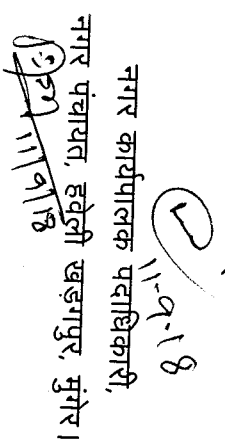 11-9-18
नगर कार्यपालक पदाधिकारी,
नगर पंचायत, हवेली खड़गपुर, मुंगेर।
11/9/18